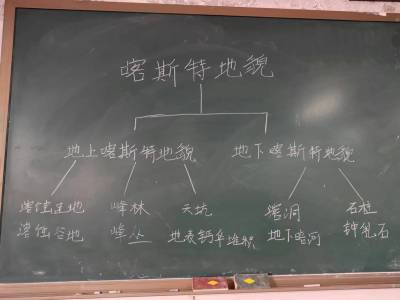 喀斯特地貌
地上喀斯特地貌 地下喀斯特地貌
溶蚀洼地 峰林 天坑 溶洞 石柱
溶蚀谷地 峰丛 地表钙华堆积 地下暗河 钟乳石